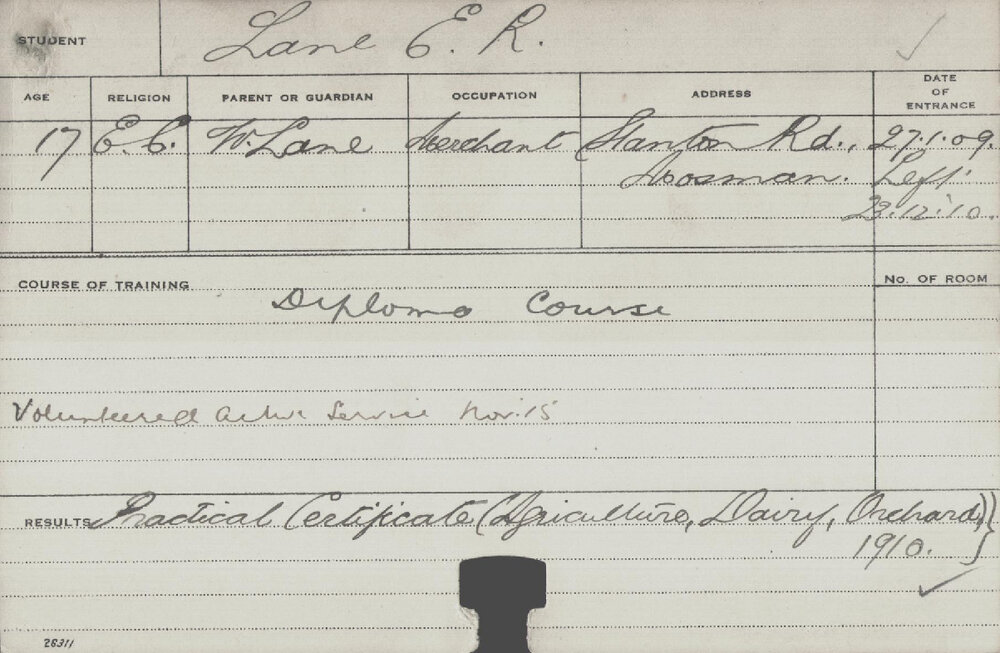 STUDENT Lane E. R.
AGE RELIGION PARENT OR GUARDIAN OCCUPATION ADDRESS DATE OF ENTRANCE
17 E.C. W. Lane Merchant Stanton Rd., 27.1.09.
Mosman. Left
23.12.10.
COURSE OF TRAINING No. OF ROOM
Diploma Course
Volunteered Active Service Nov. 15
RESULTS Practical Certificate (Agriculture, Dairy, Orchard)
1910.
28311